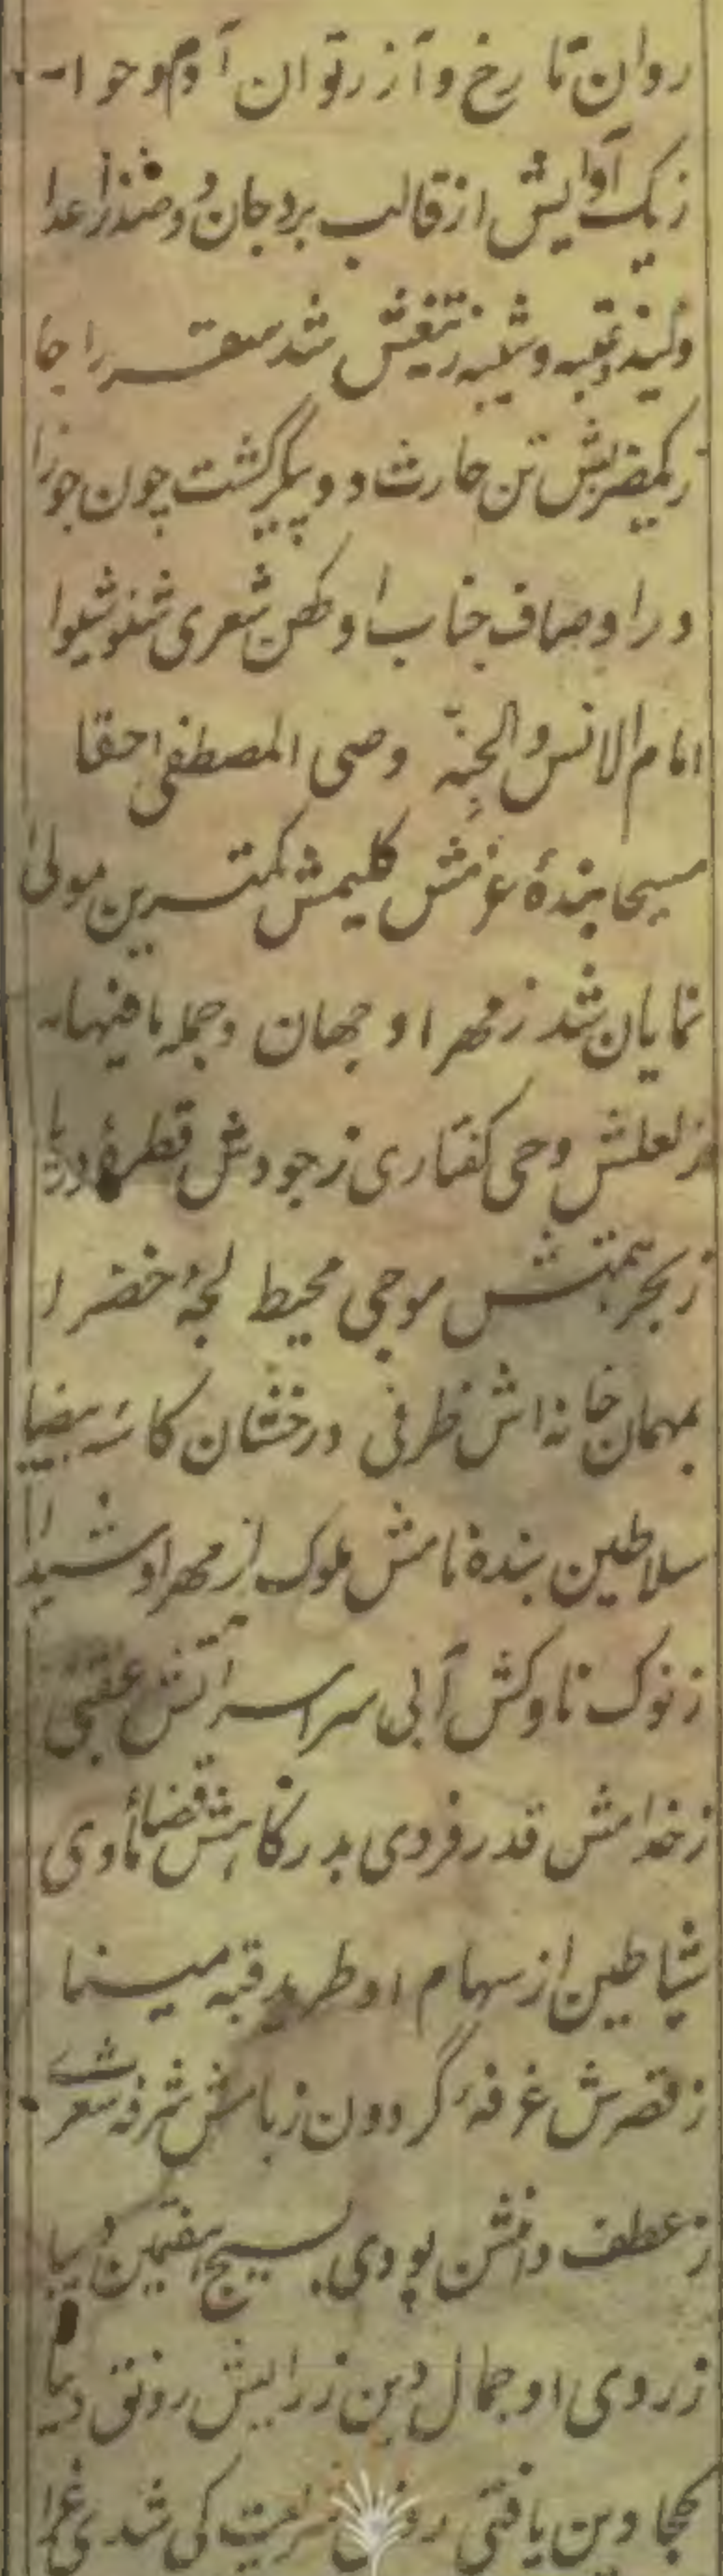 روان تارخ و آزر توان آدم و حوا
ز یک آوایش از قالب برد جان دو صد اعدا
ولید و عتبه و شیبه ز تیغش شد سقر را جا
ز یکضربش تن حارث دو پیکر گشت چون جوزا
در اوصاف جناب او کهن شعری شنو شیوا
امام الانس و الجنّه وصی المصطفی حقا
مسیحا بندهٔ عزمش کلیمش کمترین مولیٰ
نمایان شد ز مهر او جهان و جمله مافیها
ز لعلش وحی گفتاری ز جودش قطرهٔ دریا
ز بحر همتش موجی محیط لجهٔ خضرا
بمهمان خانه اش ظرفی درخشان کاسهٔ بیضا
سلاطین بندهٔ نامش ملوک از مهر او شیدا
ز نوک ناوکش آبی سراسر آتش عقبی
ز خدامش قدر فردی بدرگاهش قضا مأوی
شیاطین از سهام او طرید قبه مینا
ز قصرش غرفهٔ گردون ز بامش شرفه شعری
ز عطف دامنش پودی بسیج هفتمین دیبا
ز روی او جمال دین ز رایش رونق دنیا
کجا دین یافتی رونق شریعت کی شدی غرا